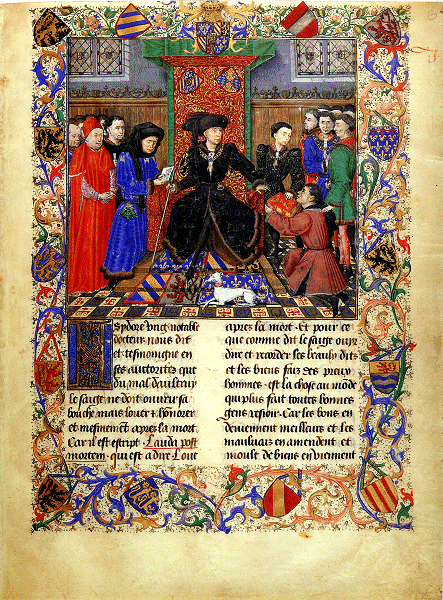 Ysydore ung notable
docteur nous dit
et tesmoingne en
ses auctoritez que
du mal d'aultruy
le saige ne doit ouvrir sa
bouche mais louer et honorer
et mesmement apres la mort
Car il est escript Lauda post
mortem qui est a dire Loue
apres la mort Et pour ce
que comme dit le saige ouyr
dire et recorder les beaulx dits
et les biens fais des preux
hommes est la chose au monde
qui plus fait toutes bonnes
gens resioir Car les bons en
deviennent meilleurs et les
mauluais en amendent et
moult de biens en viennent